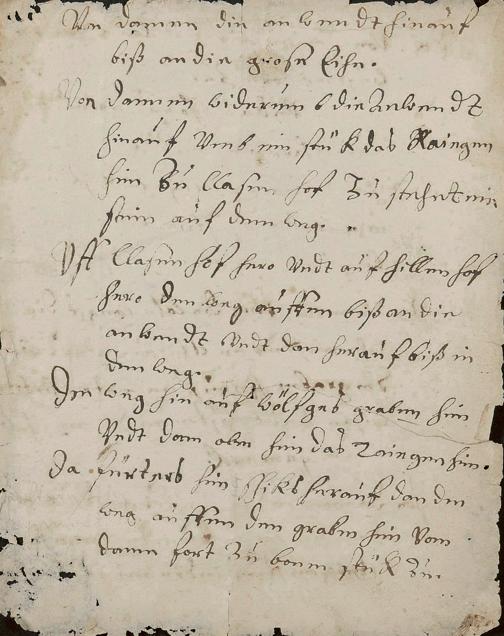 Von damen die anwendt hinauf
biß an die grose Eihe.
Von dannen widerumb die Anwendt
hinauf umb ein stük das Raingen
hin Zu Clasen hof Zu stehet ein
stein auf dem weg.
Uff Clasen hof hero undt auf hillen hof
hero den weg auffen biß an die
anwendt undt dan herauf biß in
den weg.
Den weg hin auf wölfges graben hin
undt dan oben hin das Raingen hin.
Da fürters hin herauf dan den
weg auffen den graben hin von
danen fort Zu stük Zu